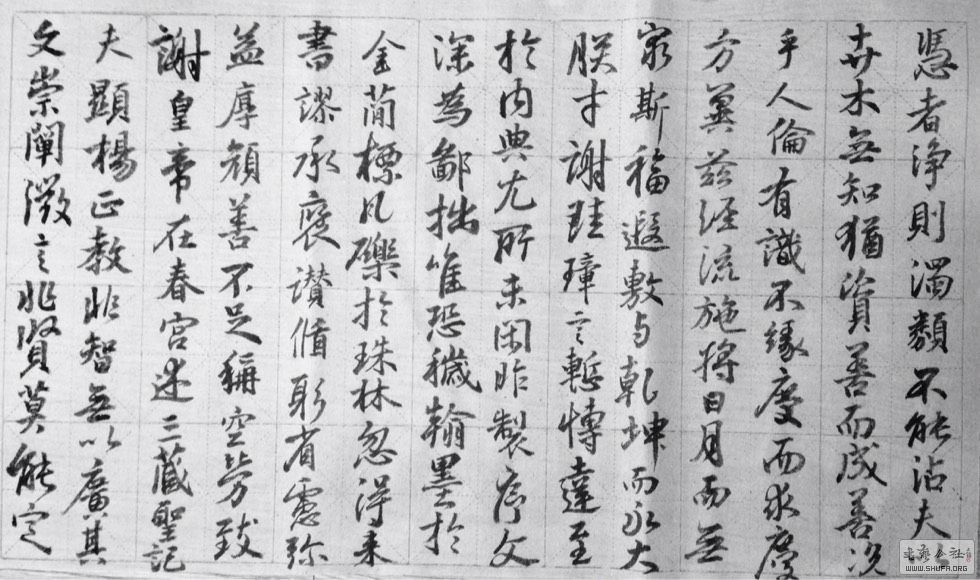 憑者浄則濁類不能沾夫
卉木無知猶資善而成善況
乎人倫有識不緣慶而求慶
方冀兹経流施将日月而無
窮斯福遐敷与乾坤而永大
朕才謝珪璋言慙博達至
於内典尤所未閑昨製序文
深為鄙拙唯恐穢翰墨於
金簡標瓦礫於珠林忽得来
書謬承褒讃循躬省慮弥
益厚顔善不足稱空勞致
謝皇帝在春宮述三藏聖記
夫顯楊正教非智無以廣其
文崇闡微言非賢莫能定
书艺公社
WWW.SHUFA.ORG